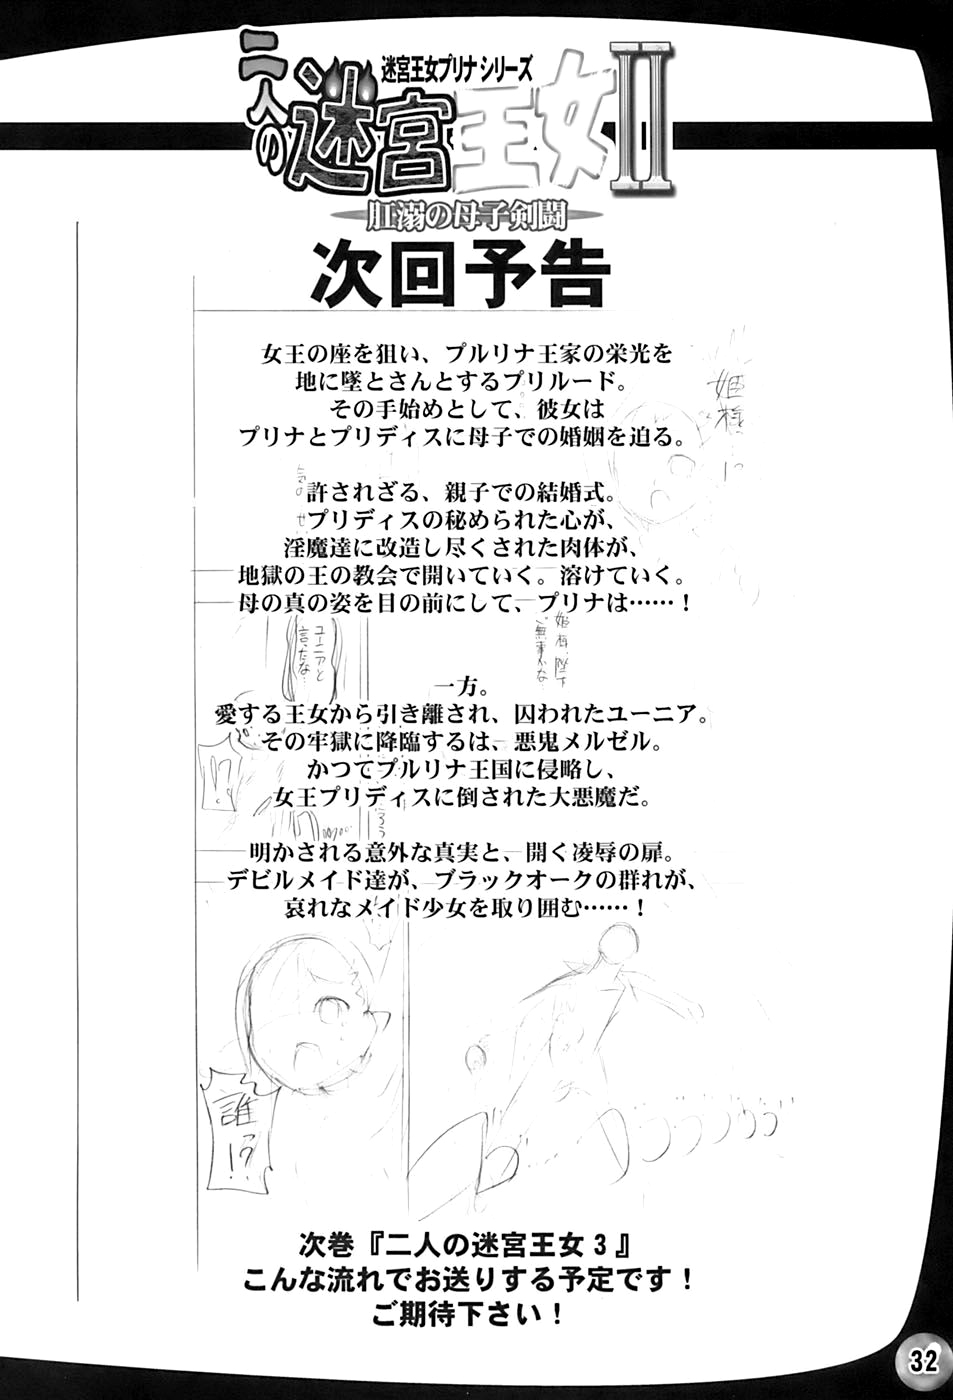 迷宮王女プリナシリーズ
二人の迷宮王女II
肛溺の母子剣闘
次回予告
女王の座を狙い、プルリナ王家の栄光を
地に墜とさんとするプリルード。
その手始めとして、彼女は
プリナとプリディスに母子での婚姻を迫る。
許されざる、親子での結婚式。
プリディスの秘められた心が、
淫魔達に改造し尽くされた肉体が、
地獄の王の教会で開いていく。溶けていく。
母の真の姿を目の前にして、プリナは……！
一方。
愛する王女から引き離され、囚われたユーニア。
その牢獄に降臨するは、悪鬼メルゼル。
かつてプルリナ王国に侵略し、
女王プリディスに倒された大悪魔だ。
明かされる意外な真実と、開く凌辱の扉。
デビルメイド達が、ブラックオークの群れが、
哀れなメイド少女を取り囲む……！
姫様
ユーニアと
言ったな
姫様 陛下
ご無事かな
!?
誰!?
次巻『二人の迷宮王女３』
こんな流れでお送りする予定です！
ご期待下さい！
32